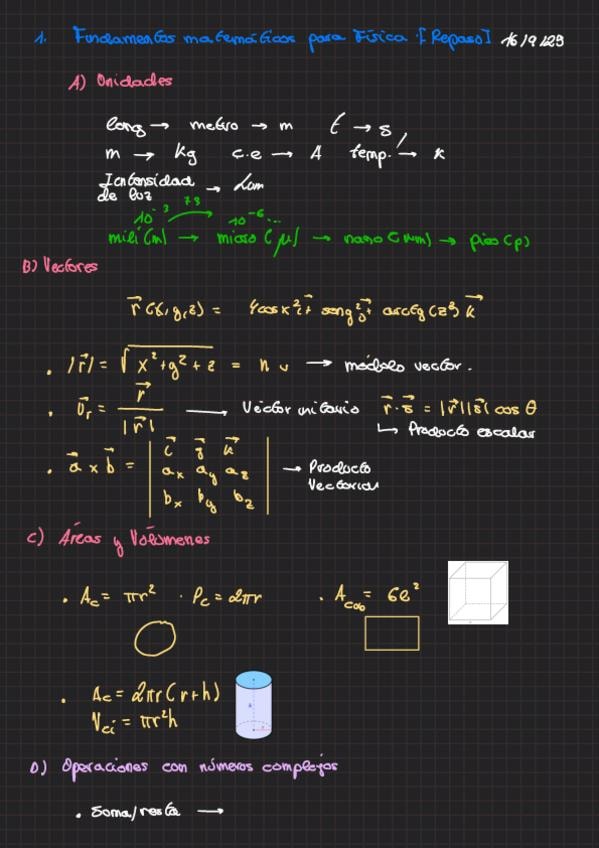 1. Fundamentos matemáticos para Física [Repaso] 16/9/25
A) Unidades
long → metro → m t → s
m → kg c.e → A temp. → K
Intensidad de luz → Lum
10⁻³ 10⁻⁶...
mili (m) → micro (μ) → nano (nm) → pico (p)
B) Vectores
r⃗ (x, y, z) = 4cosx² i⃗ + seny² j⃗ + arctg(z³) k⃗
· |r⃗| = √x² + y² + z = n u → módulo vector.
· U⃗r = r⃗ / |r⃗| → Vector unitario r⃗ · s⃗ = |r⃗||s⃗| cos θ
↳ Producto escalar
· a⃗ x b⃗ = | i⃗ j⃗ k⃗ |
| ax ay az | → Producto
| bx by bz | Vectorial
C) Áreas y Volúmenes
· Ac = πr² · Pc = 2πr · Acub = 6e²
· Ac = 2πr(r+h)
Vci = πr²h
D) Operaciones con números complejos
· Suma/resta →